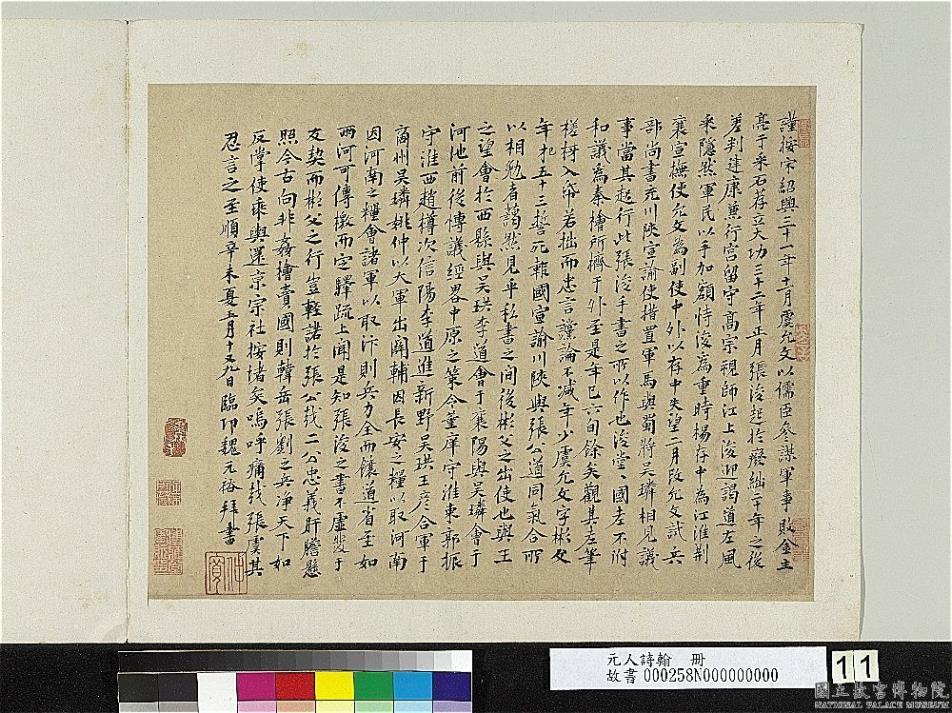 謹按宋紹興三十一年十一月虞允文以儒臣參謀軍事敗金主
亮于采石荐立大功三十二年正月張浚起於廢絀二十年之後
差判建康兼行宮留守高宗視師江上浚迎謁道左風
采隱然軍民以手加額恃浚為重時楊存中為江淮荆
襄宣撫使允文為副使中外以存中失望二月改允文試兵
部尚書充川陝宣諭使措置軍馬與蜀將吳璘相見議
事當其起行此張浚手書之所以作也浚堂〻國老不附
和議為秦檜所擠于外至是年已六旬餘矣觀其老筆
槎枒入帋若拙而忠言讜論不減年少虞允文字彬父
年五十三誓死報國宣諭川陝與張公道同氣合所
以相勉者藹然見乎私書之間後彬父之出使也與王
之望會於西縣與吳珙李道會于襄陽與吳璘會于
河池前後博議經畧中原之策令董庠守淮東郭振
守淮西趙樽次信陽李道進新野吳珙王彥合軍于
商州吳璘姚仲以大軍出關輔因長安之糧以取河南
因河南之糧會諸軍以取汴則兵力全而饟道省至如
兩河可傳檄而定驛疏上聞是知張浚之書不虛發于
友契而彬父之行豈輕諾於張公哉二公忠義肝膽懸
照今古向非姦檜賣國則韓岳張劉之兵淨天下如
反掌使乘輿還京宗社按堵矣嗚呼痛哉張虞其
忍言之至順辛未夏五月十又九日臨卭魏元裕拜書
元人詩翰 冊
故書 000258N000000000
11
國立故宮博物院
NATIONAL PALACE MUSEUM